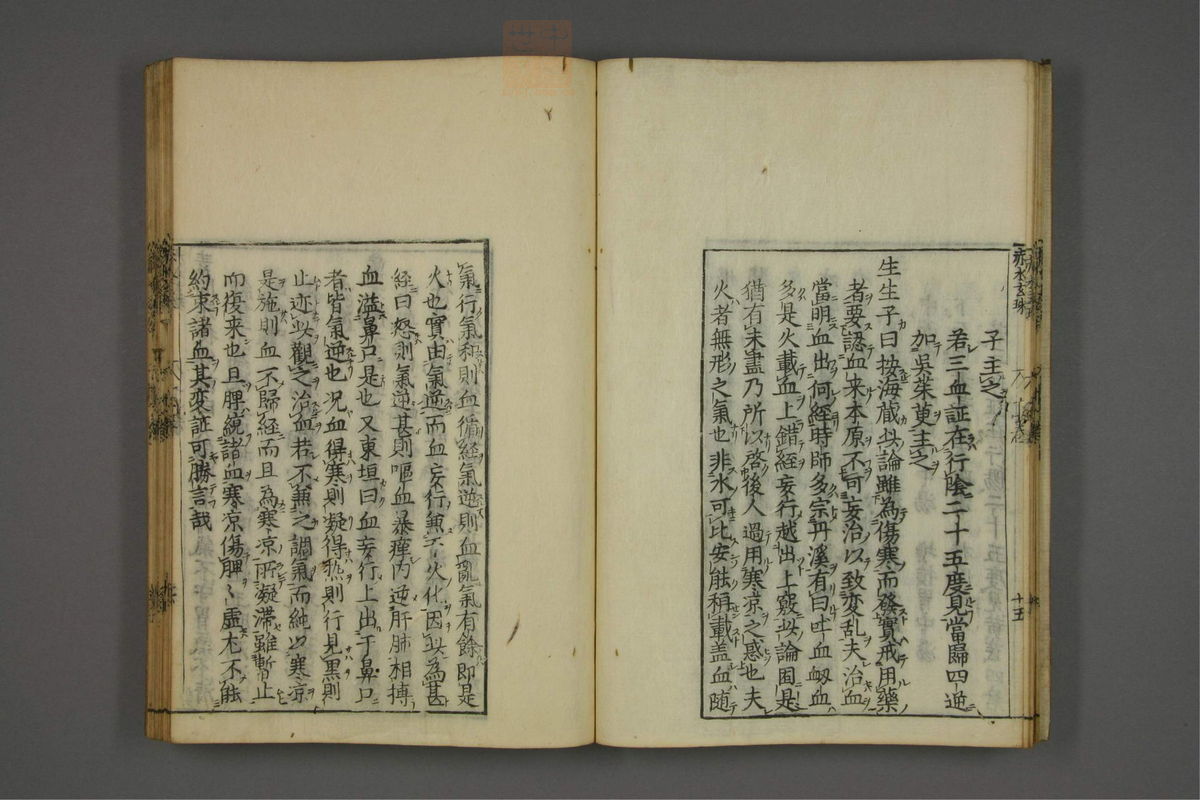 赤水玄珠
十五
子主之
若三血証在行陰二十五度見當歸四逆
加吳茱萸主之
生生子曰按海藏此論雖為傷寒而發實戒用藥
者要認血来本原不可妄治以致変乱夫治血
當明血出何經時師多宗丹溪有曰吐血衂血
多是火載血上錯經妄行越出上竅此論固是
猶有未盡乃所以啓後人過用寒凉之惑也夫
火者無形之氣也非水可比安能稱載盖血随
氣行氣和則血循経氣逆則血亂氣有餘即是
火也實由氣逆而血妄行兼于火化因此為甚
経曰怒則氣逆甚則嘔血暴癉内逆肝肺相搏
血溢鼻口是也又東垣曰血妄行上出于鼻口
者皆氣逆也况血得寒則凝得熱則行見黑則
止迹此觀之治血若不兼之調氣而純以寒凉
是施則血不歸経而且為寒凉所凝滞雖暫止
而復来也且脾統諸血寒凉傷脾〻虚尤不能
約束諸血其変証可勝言哉